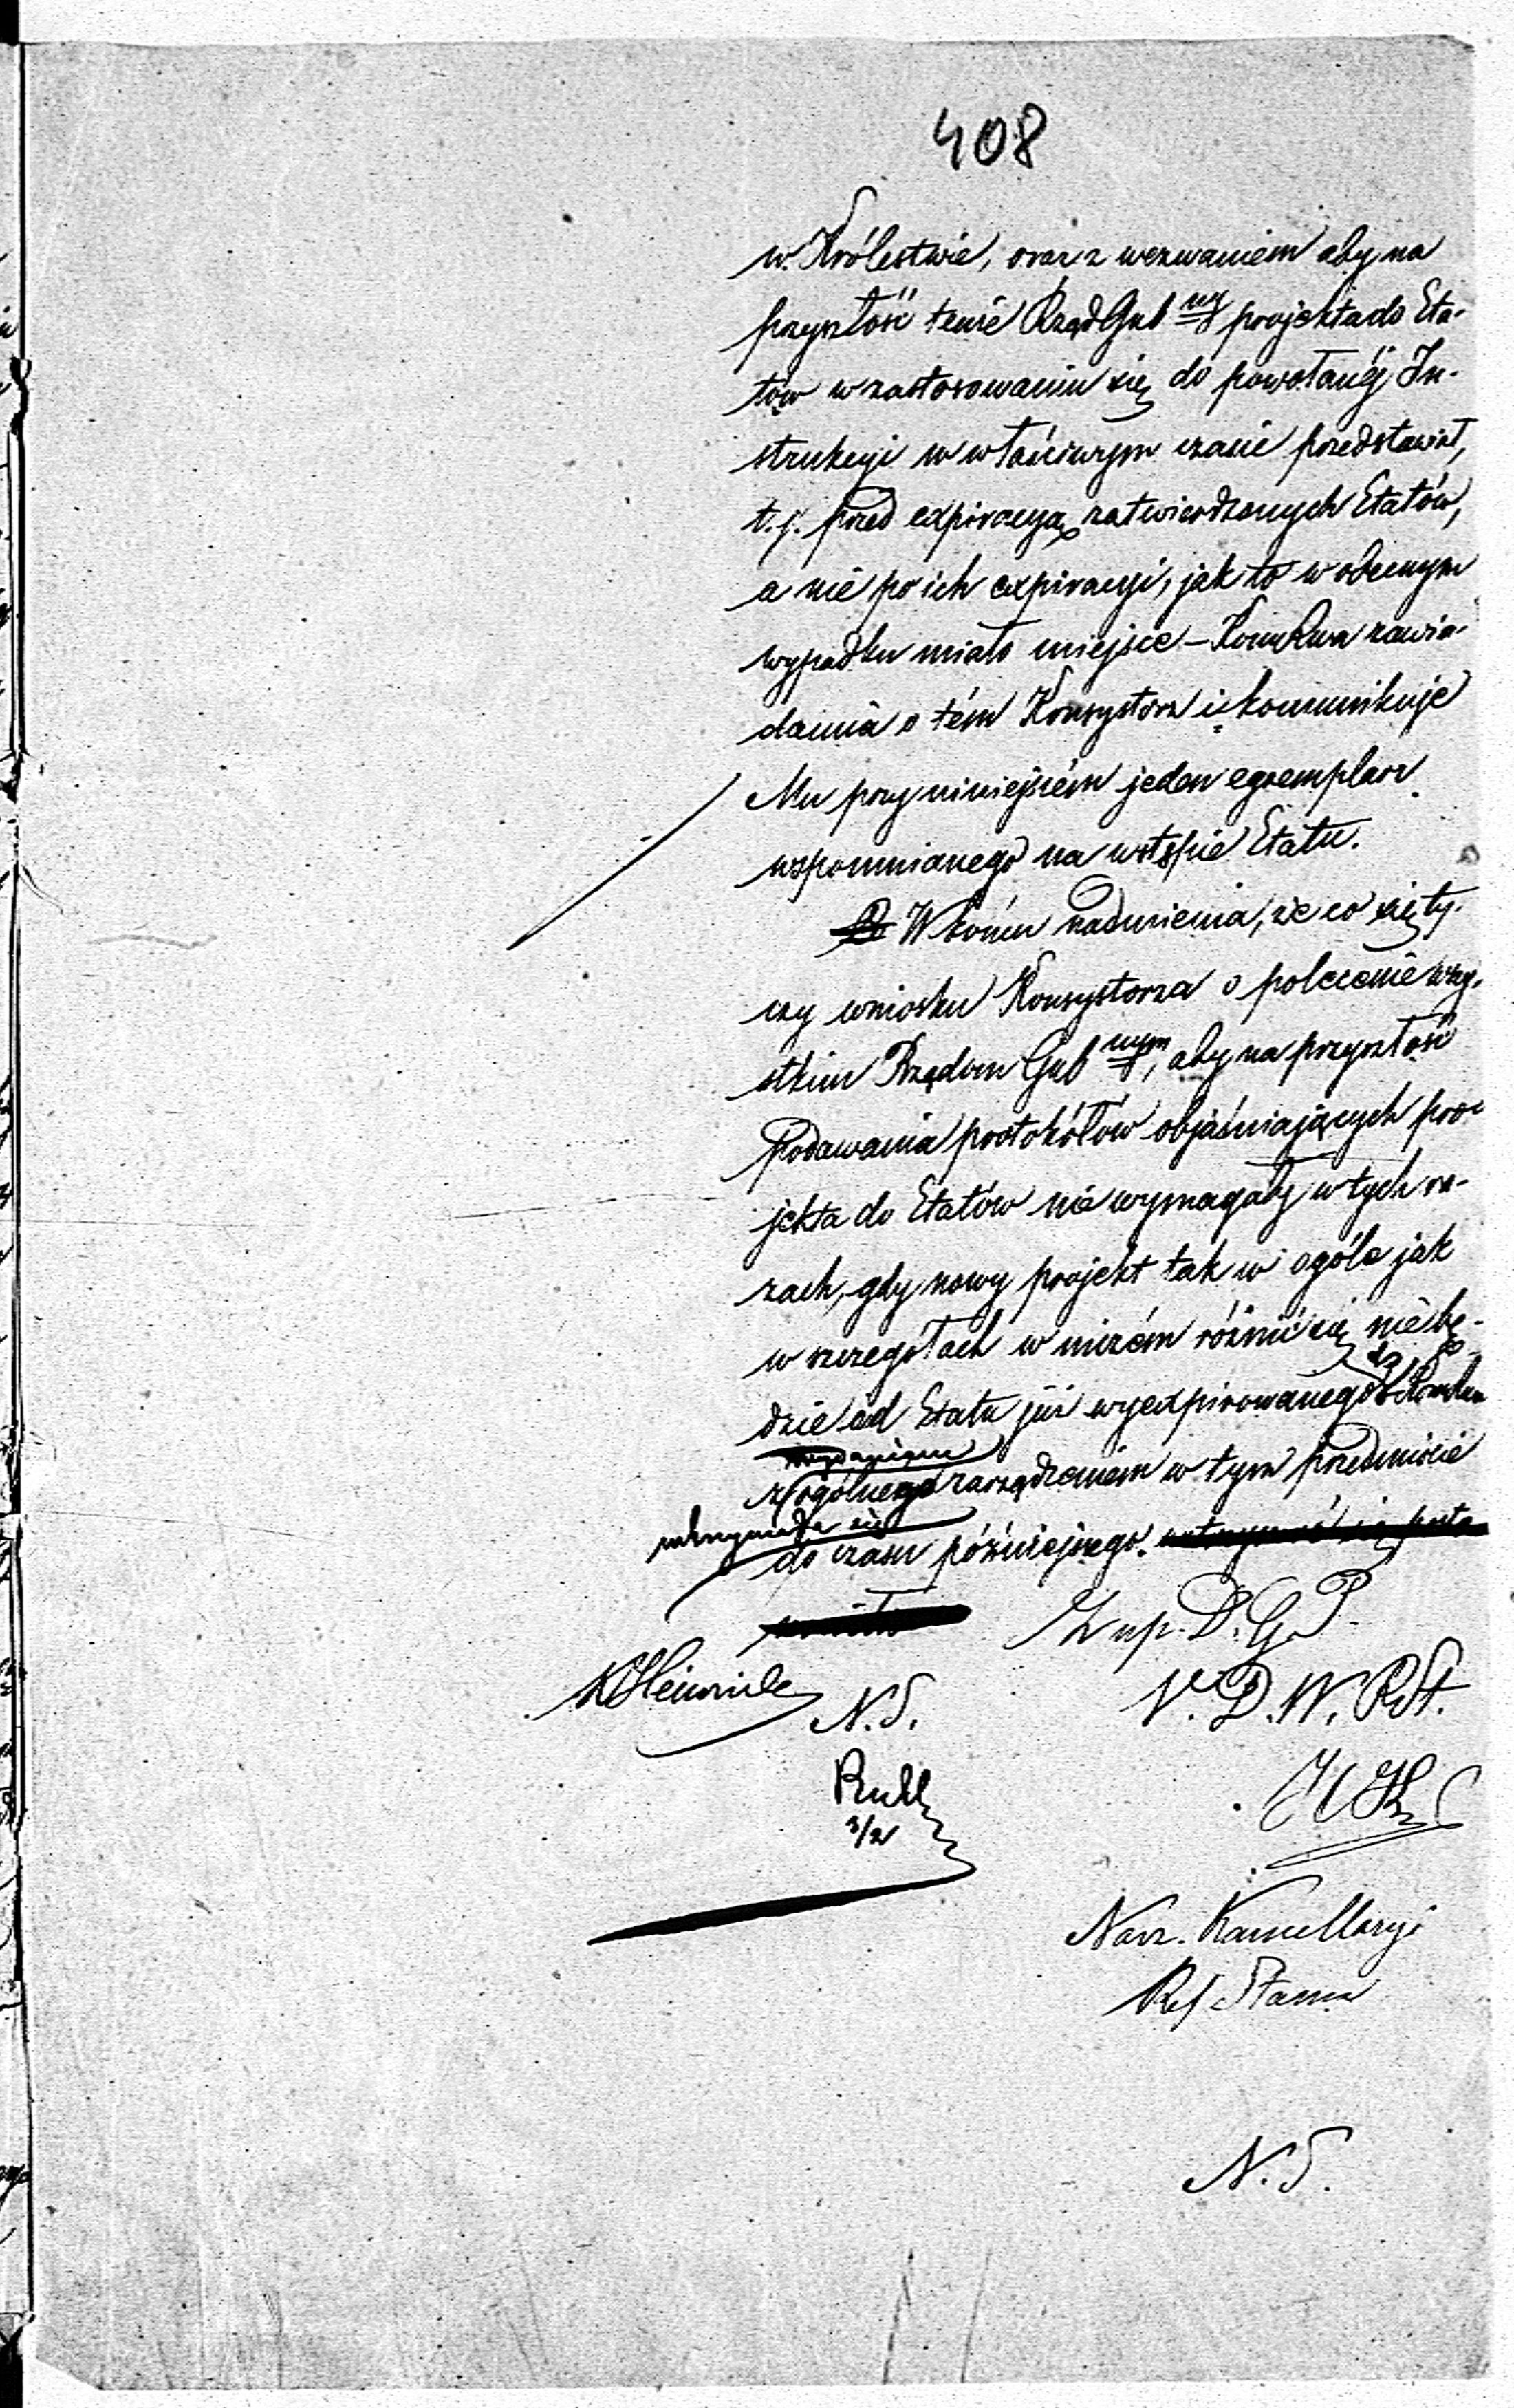 408
w. Królestwie, oraz z wezwaniem aby na
przyszłość tenże Rząd Gub ny projekta do Eta-
tów w zastosowaniu się do powołanéj In-
strukcyi w właściwym czasie przedstawiał,
t. j. przed expiracyą zatwierdzonych Etatów,
a nie po ich expiracyi, jak to w obecnym
wypadku miało miejsce – Kom Rwa zawia-
damia o tém Konsystorz i komunikuje
Mu przy niniejszém jeden egzemplarz
wspomnianego na wstępie Etatu.
W końcu nadmienia, że co się ty-
czy wniosku Konsystorza o polecenie wszy-
stkim Rządom Gub nym, aby na przyszłość
podawania protokółów objaśniających pro-
jekta do Etatów nie wymagały w tych ra-
zach, gdy nowy projekt tak w ogóle jak
w szczegółach w niczém różnić się nie bę-
dzie od Etatu już wyexpirowanego
z ogólnego zarządzeniem w tym przedmiocie
wstrzymuje się
do czasu późniejszego.
Z up. D. G. P.
N. S.
V. D. W. R. St.
Rull
3/2
Nacz. Kancellaryi
Ref Stanu
N. S.